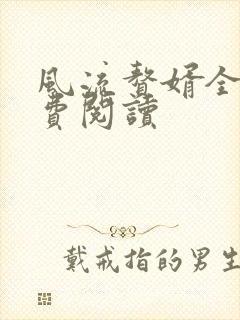 風流贅婿全
費閱讀
戴戒指的男生